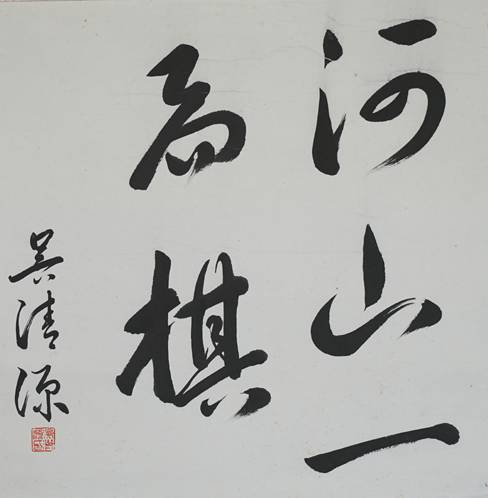 河山一
局棋
吳清源